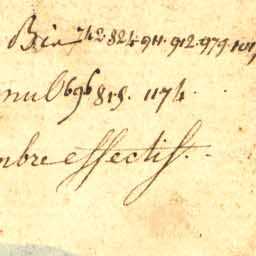 742. 824. 911. 912. 979. 101
nul 696 818. 1174.
mbre effectif.